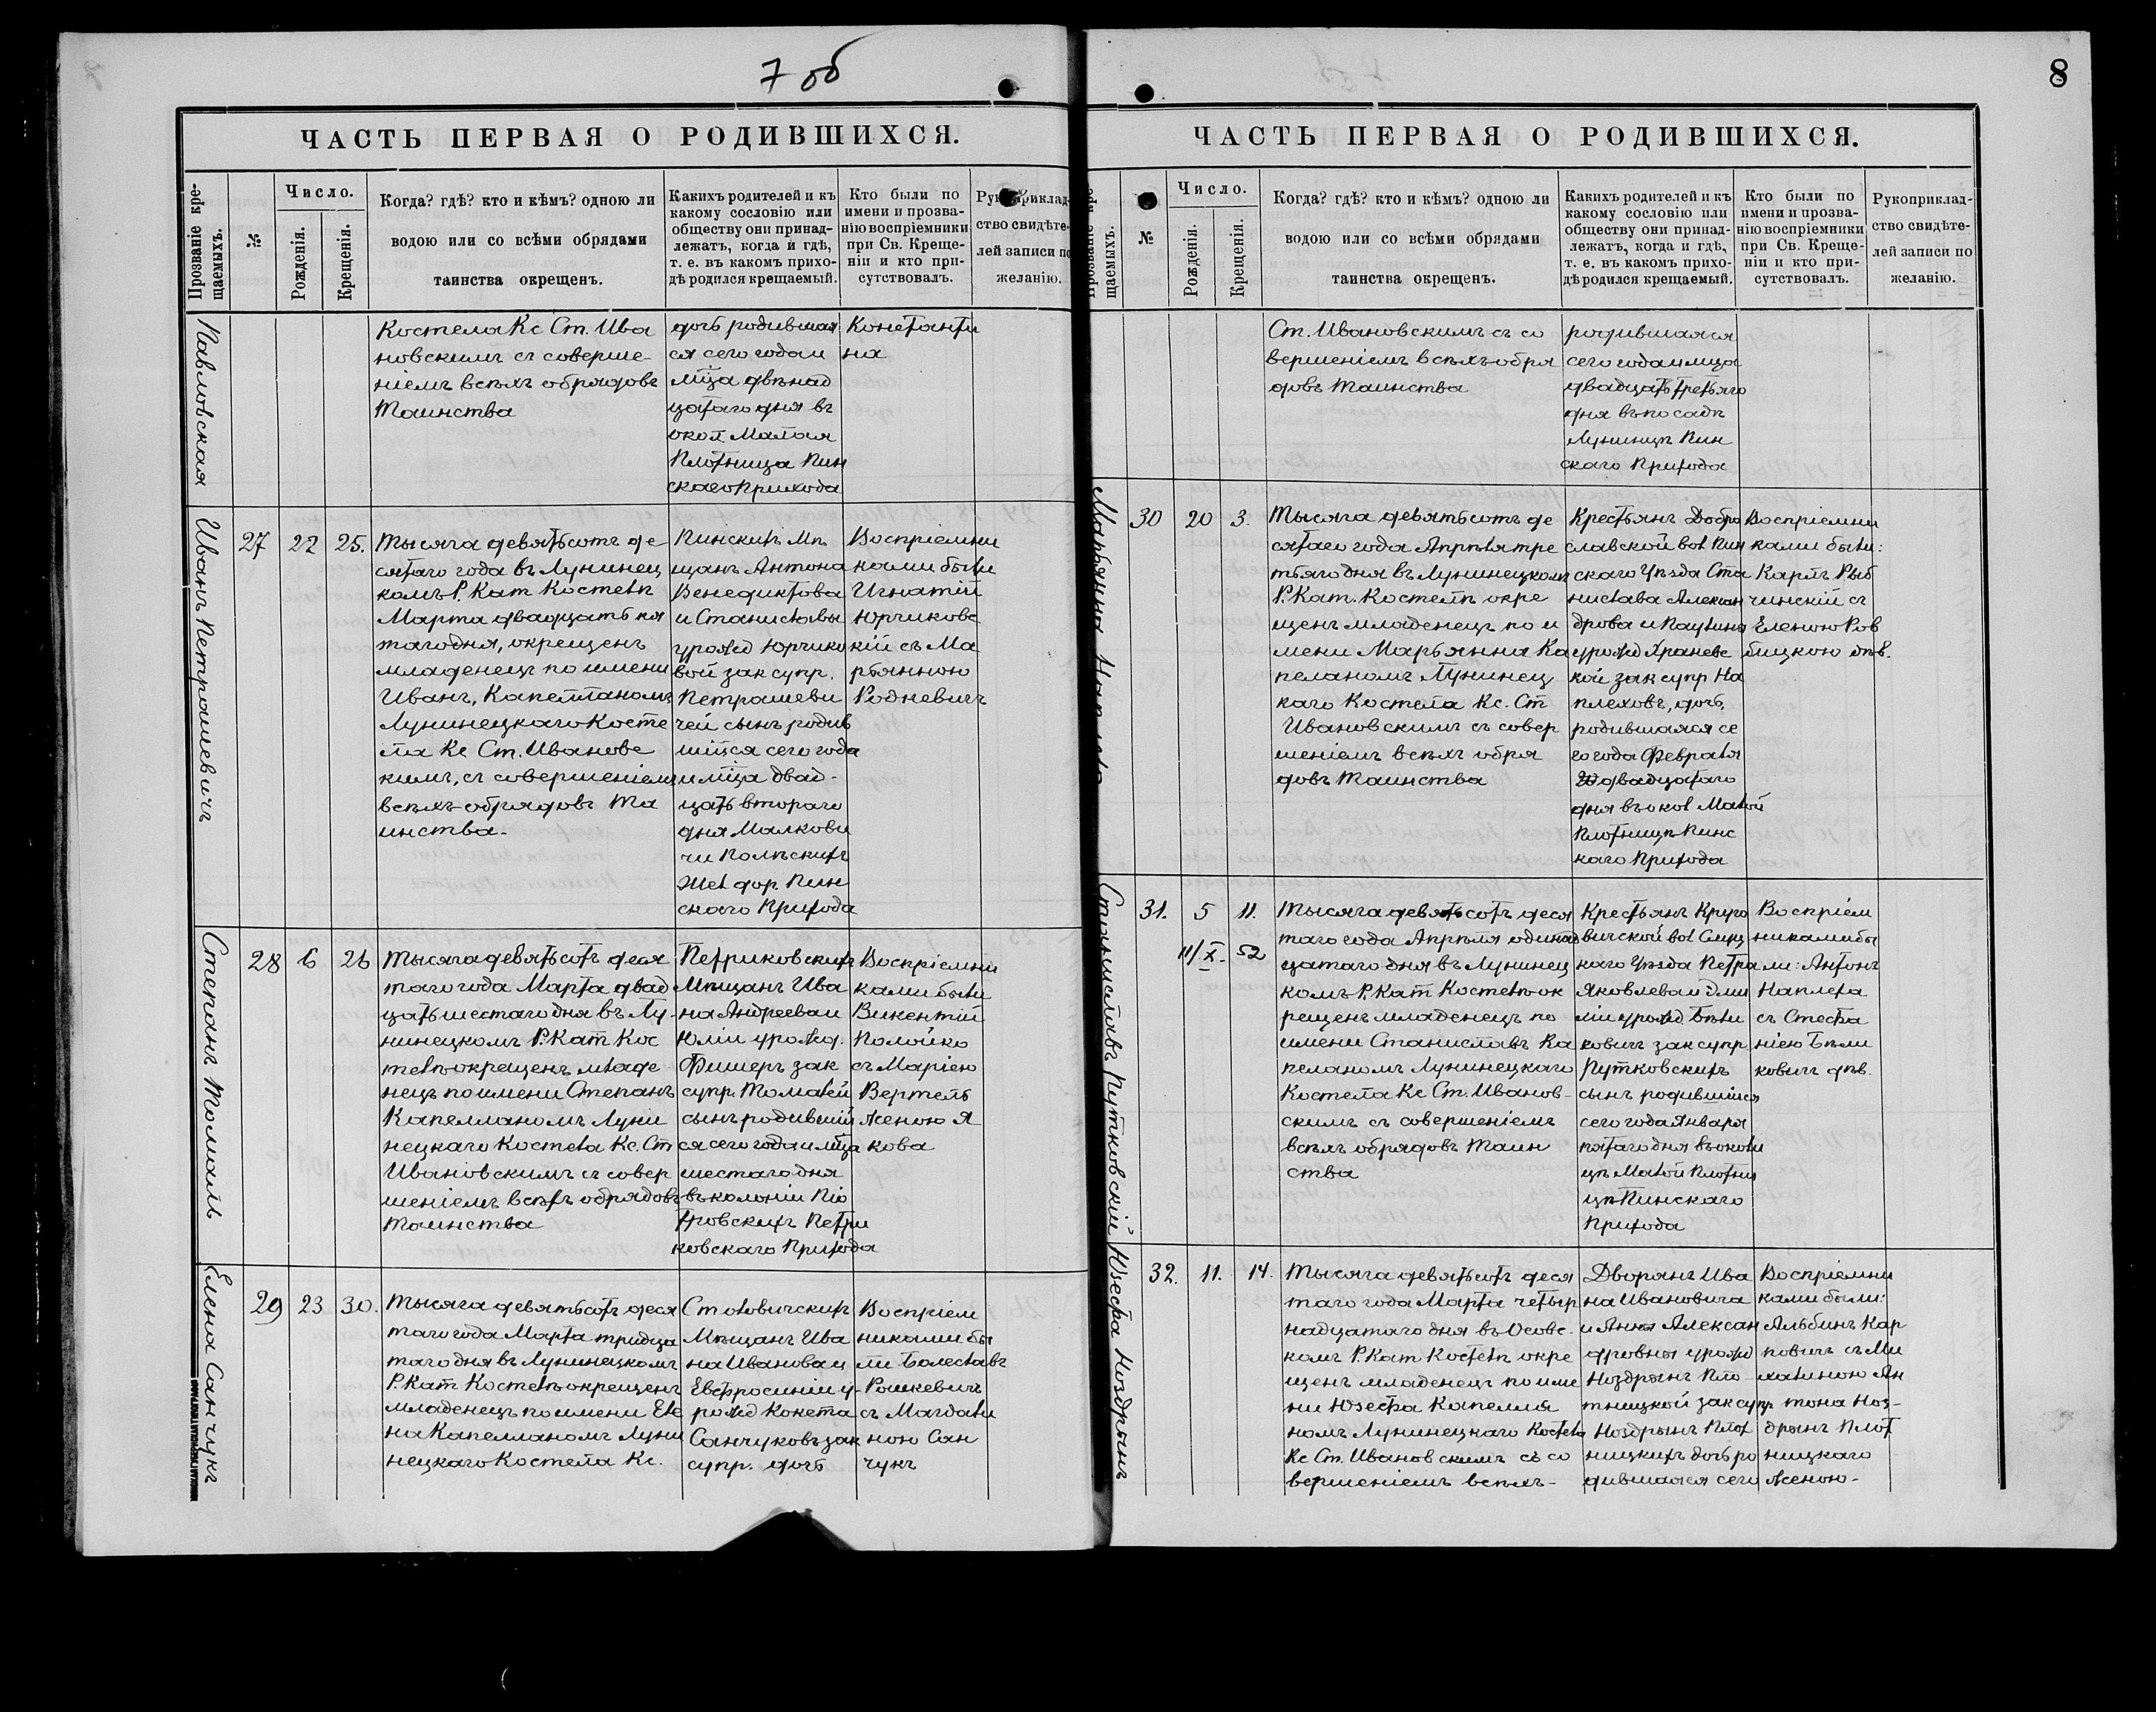 7 об
ЧАСТЬ ПЕРВАЯ О РОДИВШИХСЯ.
Прозваніе кре-
щаемыхъ.
№
Число.
Рожденія.
Крещенія.
Когда? гдѣ? кто и кѣмъ? одною ли
водою или со всѣми обрядами
таинства окрещенъ.
Какихъ родителей и къ
какому сословію или
обществу они принад-
лежатъ, когда и гдѣ,
т. е. въ какомъ прихо-
дѣ родился крещаемый.
Кто были по
имени и прозва-
нію воспріемники
при Св. Креще-
ніи и кто при-
сутствовалъ.
Рукоприклад-
ство свидѣте-
лей записи по
желанію.
Павловская
Костела Кс Ст. Ива
новскимъ съ соверше-
ніемъ всѣхъ обрядовъ
Таинства
дочь родившая
ся сего года и
мца двѣнад
цатаго дня въ
окол Малая
Плотница Пин
скаго Прихода
Константи
на
Иванъ Петрашевичъ
27
22
25.
Тысяча девятьсотъ де
сятаго года въ Лунинец
комъ Р. Кат Костелѣ
Марта двадцать пя
таго дня, окрещенъ
младенецъ по имени
Иванъ, Капелланомъ
Лунинецкаго Косте
ла Кс Ст. Ивановс
кимъ, съ совершеніемъ
всѣхъ обрядовъ Та
инства.
Пинскихъ Мѣ
щанъ Антона
Бенедиктова
и Станиславы
урожд Юрчико
вой зак супр.
Петрашеви
чей сынъ родив
шійся сего года
и мца двад-
цать втораго
дня Малкови
чи Полѣскихъ
Жел дор. Пин
скаго Прихода
Воспріемни
ками были
Игнатій
Юрчиковс
кій съ Ма
рьянною
Родневичъ
Степанъ Томаль
28
6
26
Тысяча девятьсотъ деся
таго года Марта двад
цать шестаго дня въ Лу-
нинецкомъ Р. Кат Кос
телѣ окрещенъ младе
нецъ по имени Степанъ
Капелланомъ Луни
нецкаго Костела Кс. Ст
Ивановскимъ съ совер
шеніемъ всѣхъ обрядовъ
Таинства
Петриковскихъ
Мѣщанъ Ива
на Андреева и
Юліи урожд.
Фишеръ зак
супр. Томалей
сынъ родившій
ся сего года и мца
шестаго дня
въ колоніи Піо
тровскихъ Петри
ковскаго Прихода
Воспріемни
ками были
Викентій
Полойко
съ Маріею
Вертель
женою Я
кова
Елена Санчукъ
29
23
30.
Тысяча девятьсотъ деся
таго года Марта тридца
таго дня въ Лунинецкомъ
Р. Кат Костелѣ окрещенъ
младенецъ по имени Еле
на Капелланомъ Луни
нецкаго Костела Кс.
Столовичскихъ
Мѣщанъ Ива
на Иванова и
Евфросиніи у-
рожд Конста
Санчуковъ зак
супр. дочь
Воспріем
никами бы
ли Болеславъ
Рошкевичъ
съ Магдали
ною Сан
чукъ
8
ЧАСТЬ ПЕРВАЯ О РОДИВШИХСЯ.
щаемыхъ.
№
Число.
Рожденія.
Крещенія.
Когда? гдѣ? кто и кѣмъ? одною ли
водою или со всѣми обрядами
таинства окрещенъ.
Какихъ родителей и къ
какому сословію или
обществу они принад-
лежатъ, когда и гдѣ,
т. е. въ какомъ прихо-
дѣ родился крещаемый.
Кто были по
имени и прозва-
нію воспріемники
при Св. Креще-
ніи и кто при-
сутствовалъ.
Рукоприклад-
ство свидѣте-
лей записи по
желанію.
Ст. Ивановскимъ съ со
вершеніемъ всѣхъ обря
довъ Таинства
родившаяся
сего года и мца
двадцать третьяго
дня въ посадѣ
Лунинцѣ Пин
скаго Прихода
Марьянна
30
20
3.
Тысяча девятьсотъ де
сятаго года Апрѣля тре
тьяго дня въ Лунинецкомъ
Р. Кат. Костелѣ окре
щенъ младенецъ по и
мени Марьянна Ка
пеланомъ Лунинец
каго Костела Кс. Ст
Ивановскимъ съ совер
шеніемъ всѣхъ обря
довъ Таинства
Крестьянъ Добро
славской вол Пин
скаго Уѣзда Ста
нислава Алексан
дрова и Паулины
урожд Храневс
кой зак супр На
плеховъ, дочь,
родившаяся се
го года Февраля
двадцатаго
дня въ окол Малой
Плотницѣ Пинс
каго Прихода
Воспріемни
ками были:
Карлъ Рыб
чинскій съ
Еленою Ров
бицкою дѣв.
Станиславъ Рутковскій
31.
5
11.
11/X.
52
Тысяча девятьсотъ деся
таго года Апрѣля одинад
цатаго дня въ Лунинец
комъ Р. Кат Костелѣ ок
рещенъ младенецъ по
имени Станиславъ Ка
пеланомъ Лунинецкаго
Костела Кс Ст. Иванов-
скимъ съ совершеніемъ
всѣхъ обрядовъ Таин
ства
Крестьянъ Круго
вичской вол Слуц
каго Уѣзда Петра
Яковлева и Эми
ліи урожд Бѣли
ковичъ зак супр
Рутковскихъ
сынъ родившійся
сего года Января
пятаго дня въ околи
цѣ Малой Плотни
цѣ Пинскаго
Прихода
Воспріем
никами бы
ли: Антонъ
Наплеха
съ Стефа
ніею Бѣли
ковичъ дѣв.
Юзефа Ноздрынъ
32.
11.
14.
Тысяча девятьсотъ деся
таго года Марта четыр
надцатаго дня въ Осовс-
комъ Р. Кат Костелѣ окре
щенъ младенецъ по име
ни Юзефа Капелла
номъ Лунинецкаго Костела
Кс Ст. Ивановскимъ съ со
вершеніемъ всѣхъ-
Дворянъ Ива
на Ивановича
и Анны Алексан
дровны урожд
Ноздрынъ Пло-
тницкой зак супр
Ноздрынъ Плот
ницкихъ дочь ро
дившаяся сего
Воспріемни
ками были:
Альбинъ Кар
повичъ съ Ми
халиною Ан
тона Ноз-
дрынъ Плот
ницкаго
женою-